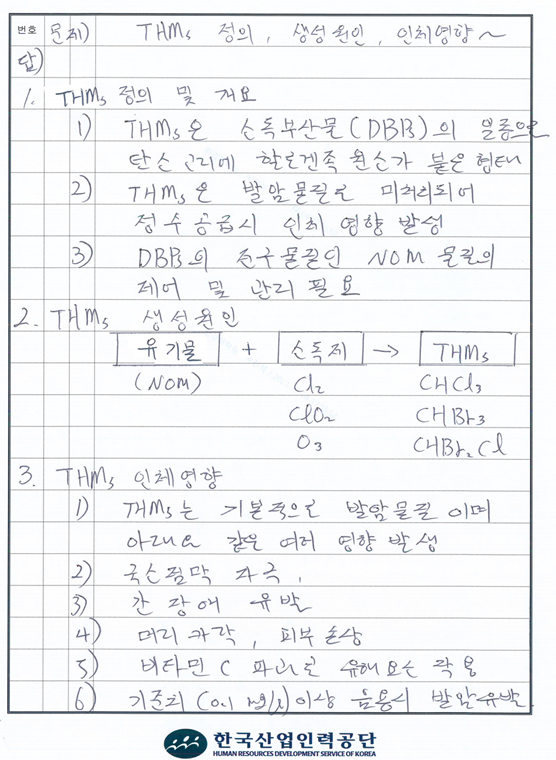 번호 문제) THMs 정의, 생성원인, 인체영향~
답)
1. THMs 정의 및 개요
1) THMs은 소독부산물(DBPs)의 일종으로
탄소 고리에 할로겐족 원소가 붙은 형태
2) THMs은 발암물질로 미처리되어
정수 공급시 인체 영향 발생
3) DBPs의 전구물질인 NOM 물질의
제어 및 관리 필요
2. THMs 생성원인
유기물 + 소독제 → THMs
(NOM) Cl₂ CHCl₃
ClO₂ CHBr₃
O₃ CHBr₂Cl
3. THMs 인체영향
1) THMs는 기본적으로 발암물질이며
아래와 같은 여러 영향 발생
2) 국소점막 자극,
3) 간 장애 유발
4) 머리카락, 피부 손상
5) 비타민 C 파괴로 유해요소 작용
6) 기준치 (0.1 mg/l)이상 음용시 발암유발.
한국산업인력공단
HUMAN RESOURCES DEVELOPMENT SERVICE OF KOREA